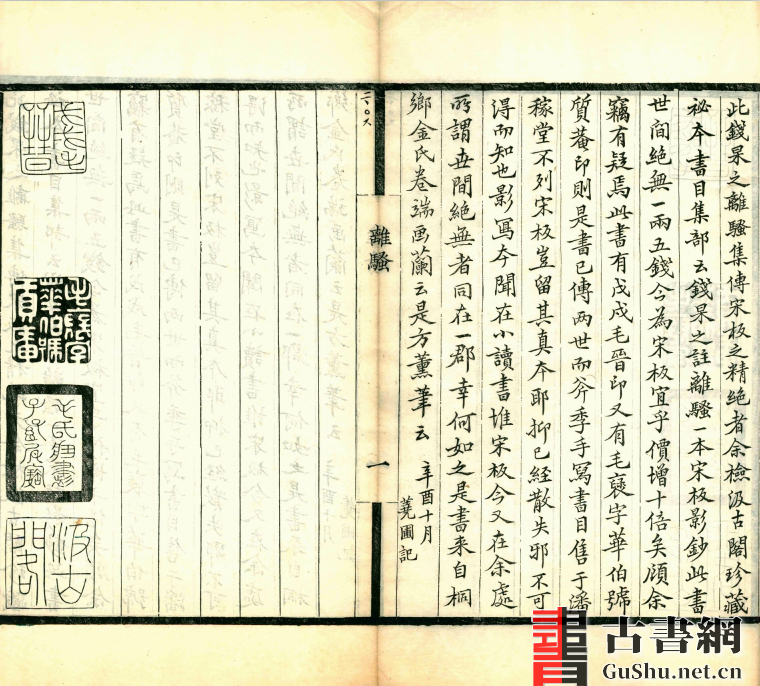 此錢杲之離騷集傳宋板之精絶者余檢汲古閣珍藏
秘本書目集部云錢杲之註離騷一本宋板影鈔此書
世間絶無一兩五錢今為宋板宜乎價增十倍矣顧余
竊有疑焉此書有戊戌毛晉印又有毛褒字華伯號
質菴印則是書已傳兩世而斧季手寫書目售于潘
稼堂不列宋板豈留其真本耶抑已經散失邪不可
得而知也影寫本聞在小讀書堆宋板今又在余處
所謂世間絶無者同在一郡幸何如之是書来自桐
鄉金氏卷端画蘭云是方薰筆云
辛酉十月
蕘圃記
離騷
一
汲古
閣
古書網
GuShu.net.cn